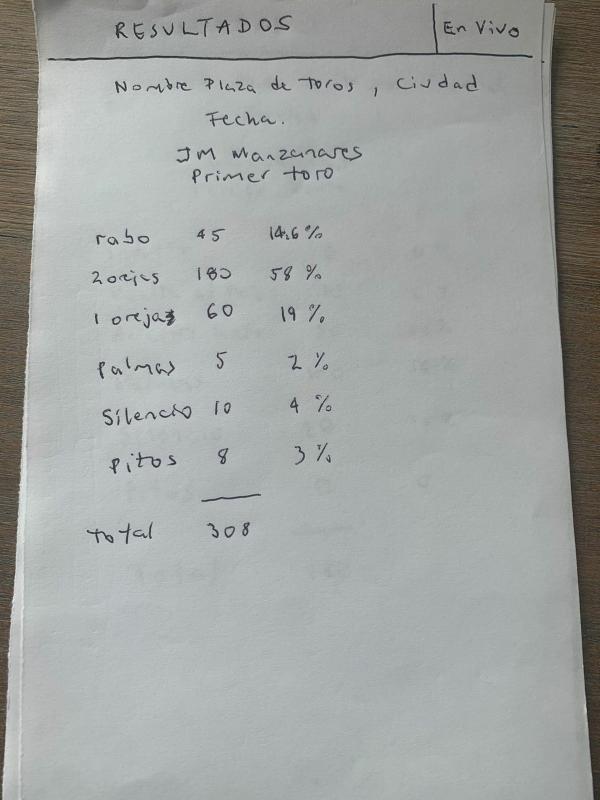 RESULTADOS En Vivo
Nombre Plaza de Toros, Ciudad
Fecha.
JM Manzanares
Primer toro
rabo 45 14.6%
2 orejas 180 58 %
1 oreja 60 19 %
Palmas 5 2 %
Silencio 10 4 %
Pitos 8 3 %
Total 308